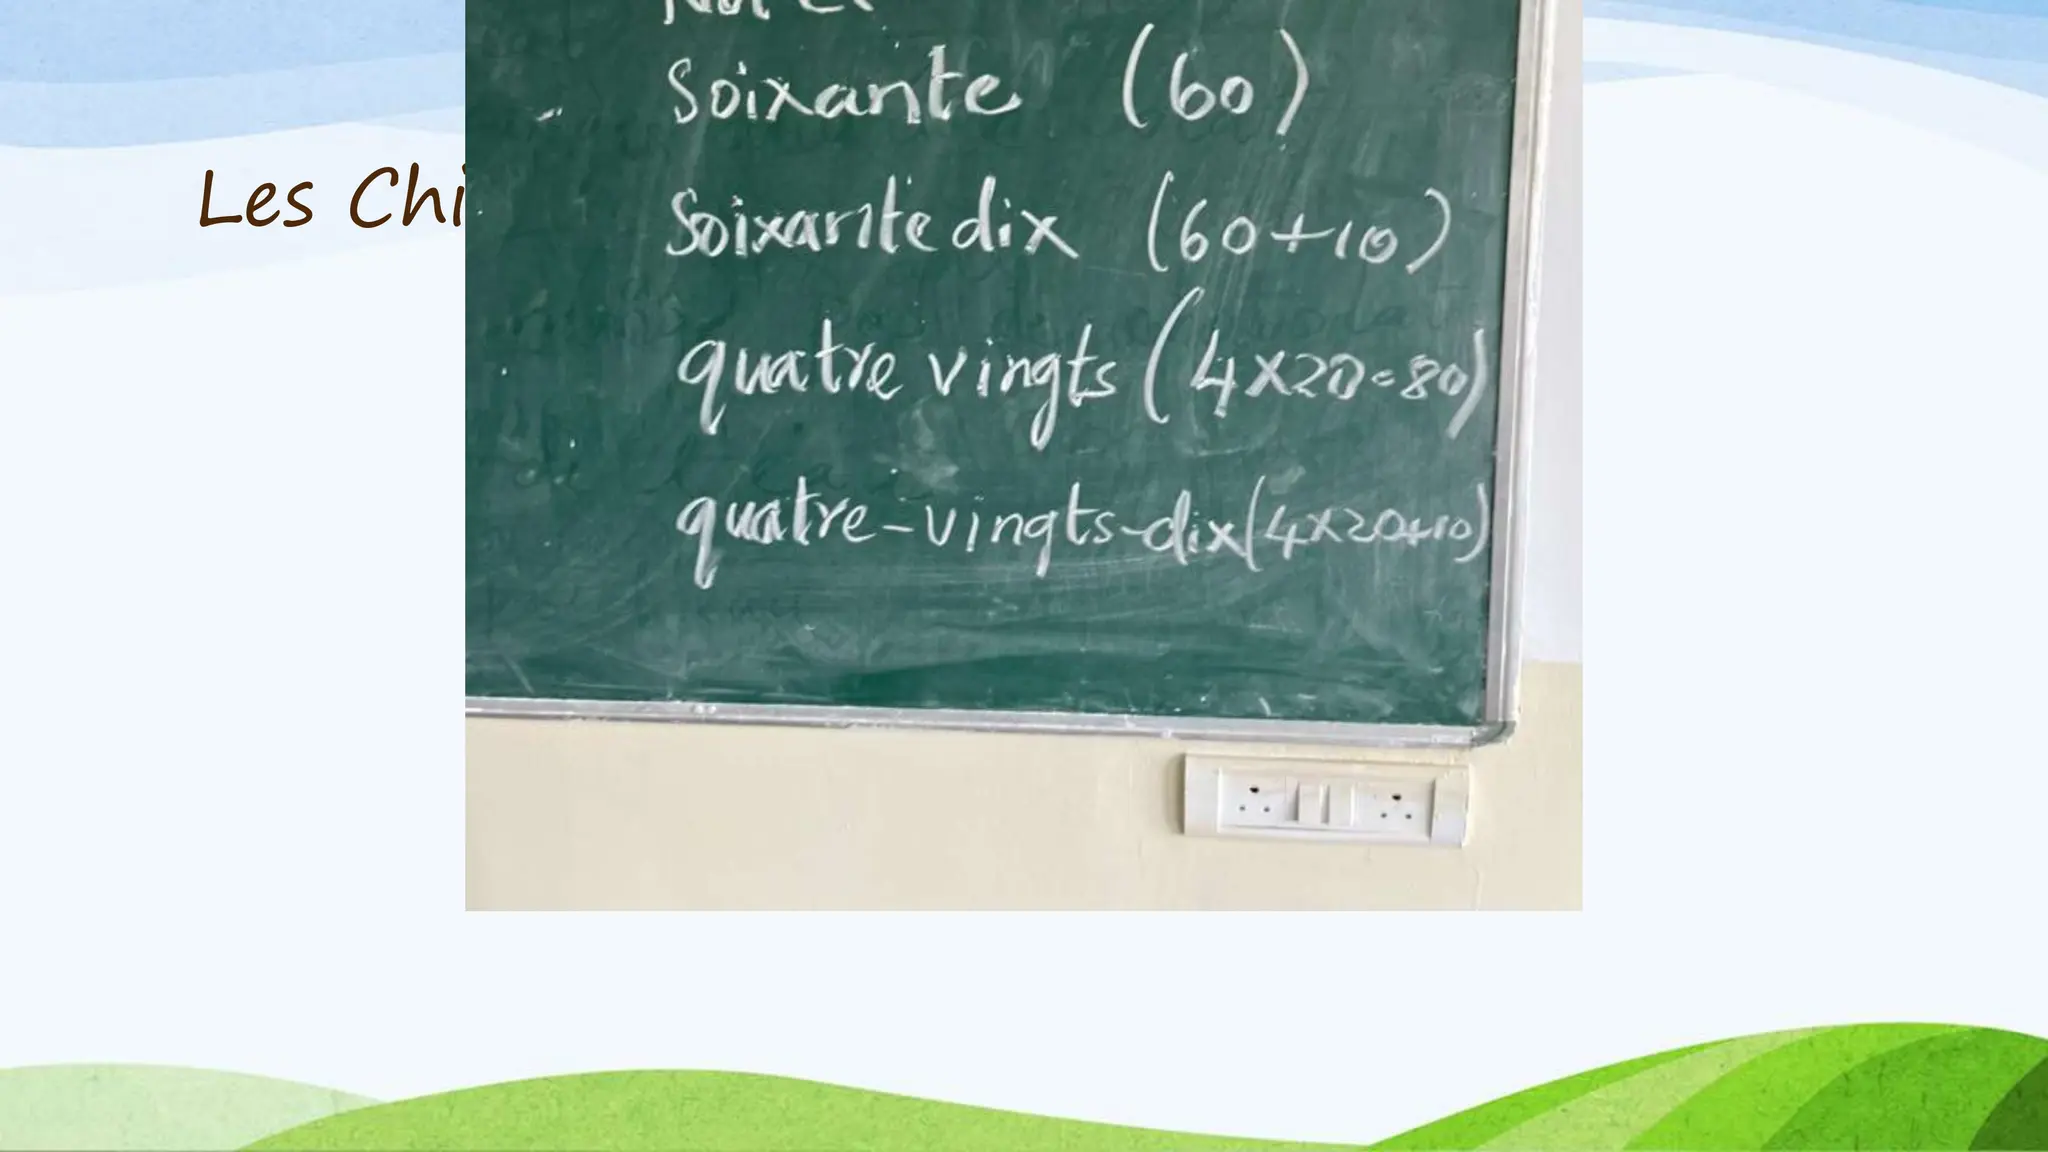 Soixante (60)
Les Chi
Soixante dix (60+10)
quatre vingts (4x20=80)
quatre-vingts-dix (4x20+10)